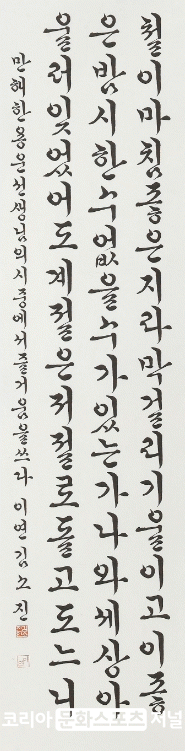 철이마침좋은지라막걸리기울이고이좋
은밤시한수없을수가있는가나와세상아
울러잊었어도계절은저절로돌고도느니
만해한용운선생님의시중에서즐거움을쓰다 이연 김소진
코리아 문화스포츠 저널